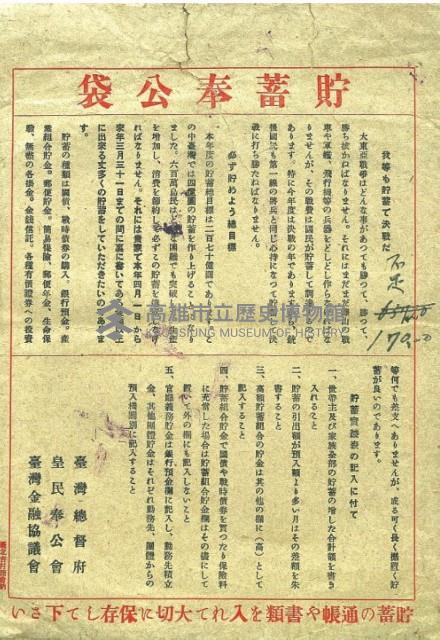 貯蓄奉公袋
我等も貯蓄で決戦だ
大東亞戰爭はどんな事があつても勝つて、勝つて、
勝ち抜かねばなりません。それにはまだまだ
車や軍艦、飛行機等の兵器をどしどし作らなければな
りませんが、その戰費は國民が貯蓄して
あります。特に今年度は決戰の年であります。銃
後國民も第一線の將兵と同じ心持になつて貯蓄
戰に打ち勝たねばなりません。
必ず貯めよう總目標
本年度の貯蓄總目標は二百七十億圓であり
の中臺灣では四億圓の貯蓄を作り上げること
ました。六百萬島民はどんな困難でも突破し
を增加し、消費を節約して必ずこの貯蓄を
ればなりません。それには貴家で本年四月一日から
來年三月三十一日までの間に裏に書いてある
に出來る丈多くの貯蓄をしていただきたいのであり
す。
貯蓄の種類は國債、戰時債券の購入、銀行預金、產
業組合貯金、郵便貯金、簡易保險、郵便年金、生命保
險、無盡の各掛金、金錢信託、各種有價證券への投資
不足
179.00
等何でも差支へありませんが、成る可く長く据置く貯
蓄が良いのであります。
貯蓄實績表の記入に付て
一、世帶主及び家族全部の貯蓄の增した合計額を書き
入れること
二、貯蓄の引出額が預入額より多い月はその差額を朱
書すること
三、高額貯蓄組合の貯金は其の他の欄に(高)として
記入すること
四、貯蓄組合貯金で國債や戰時債券を買つたり保險料
に充當した場合は貯蓄組合貯金欄はその儘にして
置いて外の欄にも記入しないこと
五、官廳義務貯金は銀行預金欄に記入し、勤務先積立
金、其他團體貯金はそれぞれ勤務先、團體からの
預入機關別に記入すること
臺灣總督府
皇民奉公會
臺灣金融協議會
貯蓄の通帳や書類を入れて大切に保存して下さい
高雄市立歷史博物館
KAOHSIUNG MUSEUM OF HISTORY